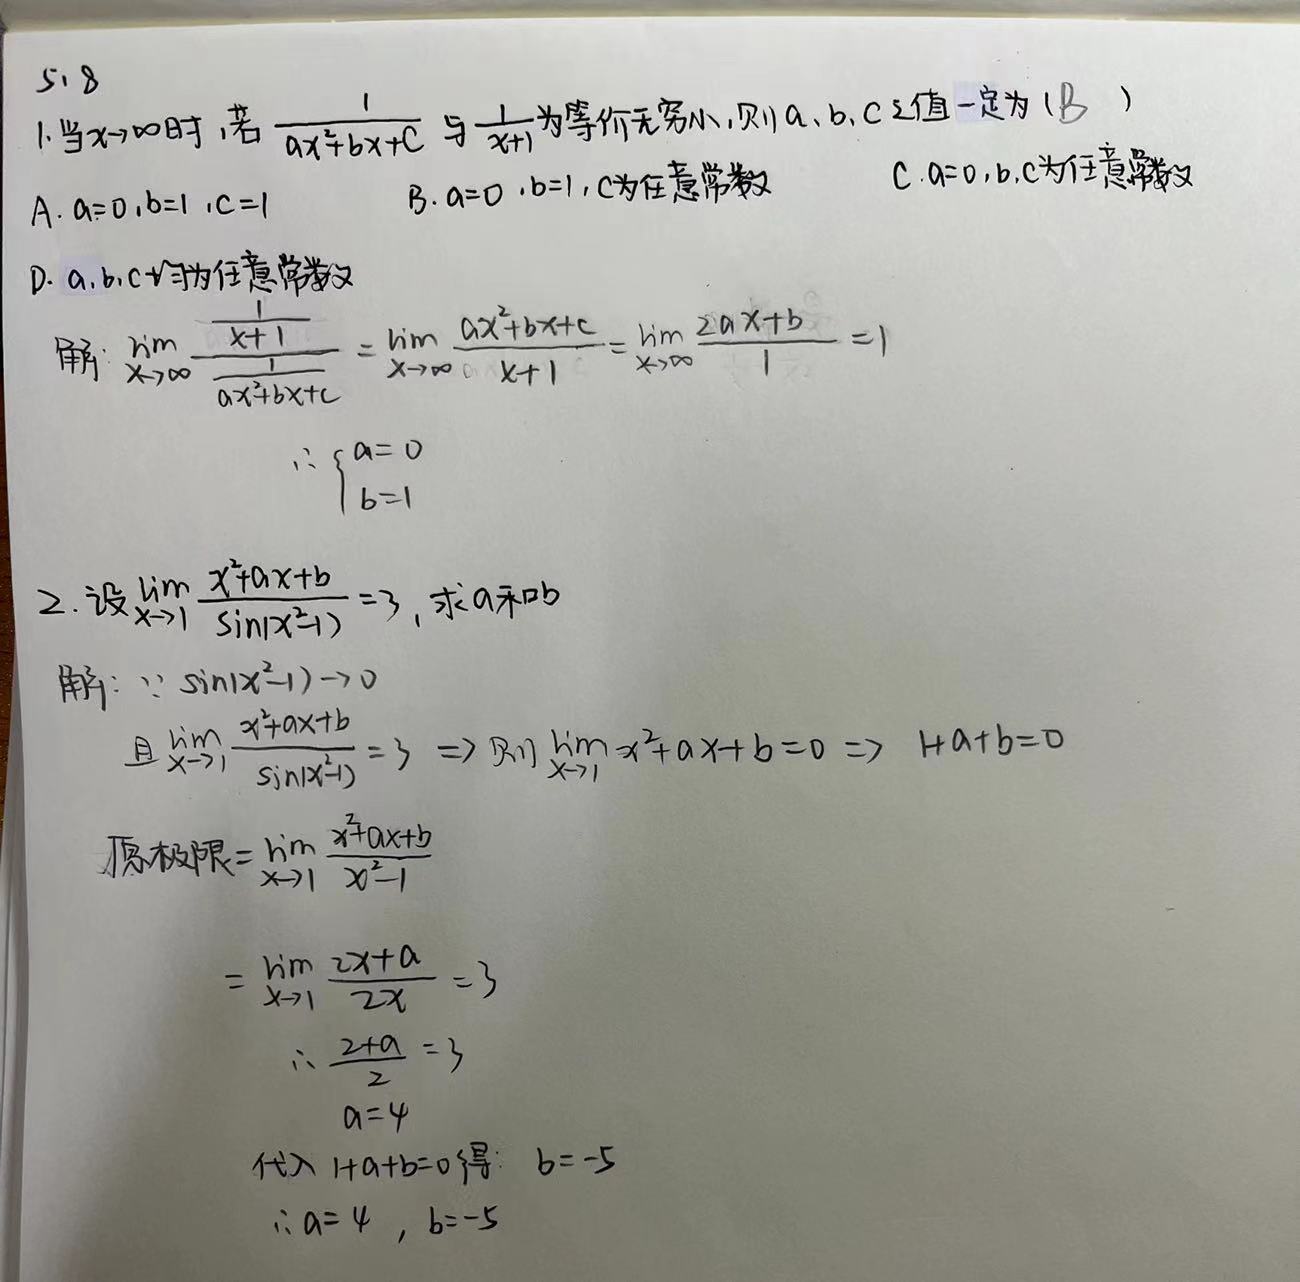 5.8
1.当x→∞时,若 1/(ax²+bx+c) 与 1/(x+1) 为等价无穷小,则a、b、c之值一定为(B )
A. a=0,b=1,c=1 B. a=0,b=1,c为任意常数 C. a=0,b,c为任意常数
D. a,b,c均为任意常数
解: lim x→∞ (1/(x+1))/(1/(ax²+bx+c)) = lim x→∞ (ax²+bx+c)/(x+1) = lim x→∞ (2ax+b)/1 = 1
∴ { a=0
b=1
2.设 lim x→1 (x²+ax+b)/sin(x²-1) =3,求a和b
解: ∵ sin(x²-1)→0
且 lim x→1 (x²+ax+b)/sin(x²-1) =3 => 则 lim x→1 x²+ax+b=0 => 1+a+b=0
原极限= lim x→1 (x²+ax+b)/(x²-1)
= lim x→1 (2x+a)/(2x) =3
∴ (2+a)/2 =3
a=4
代入 1+a+b=0得: b=-5
∴ a=4 , b=-5